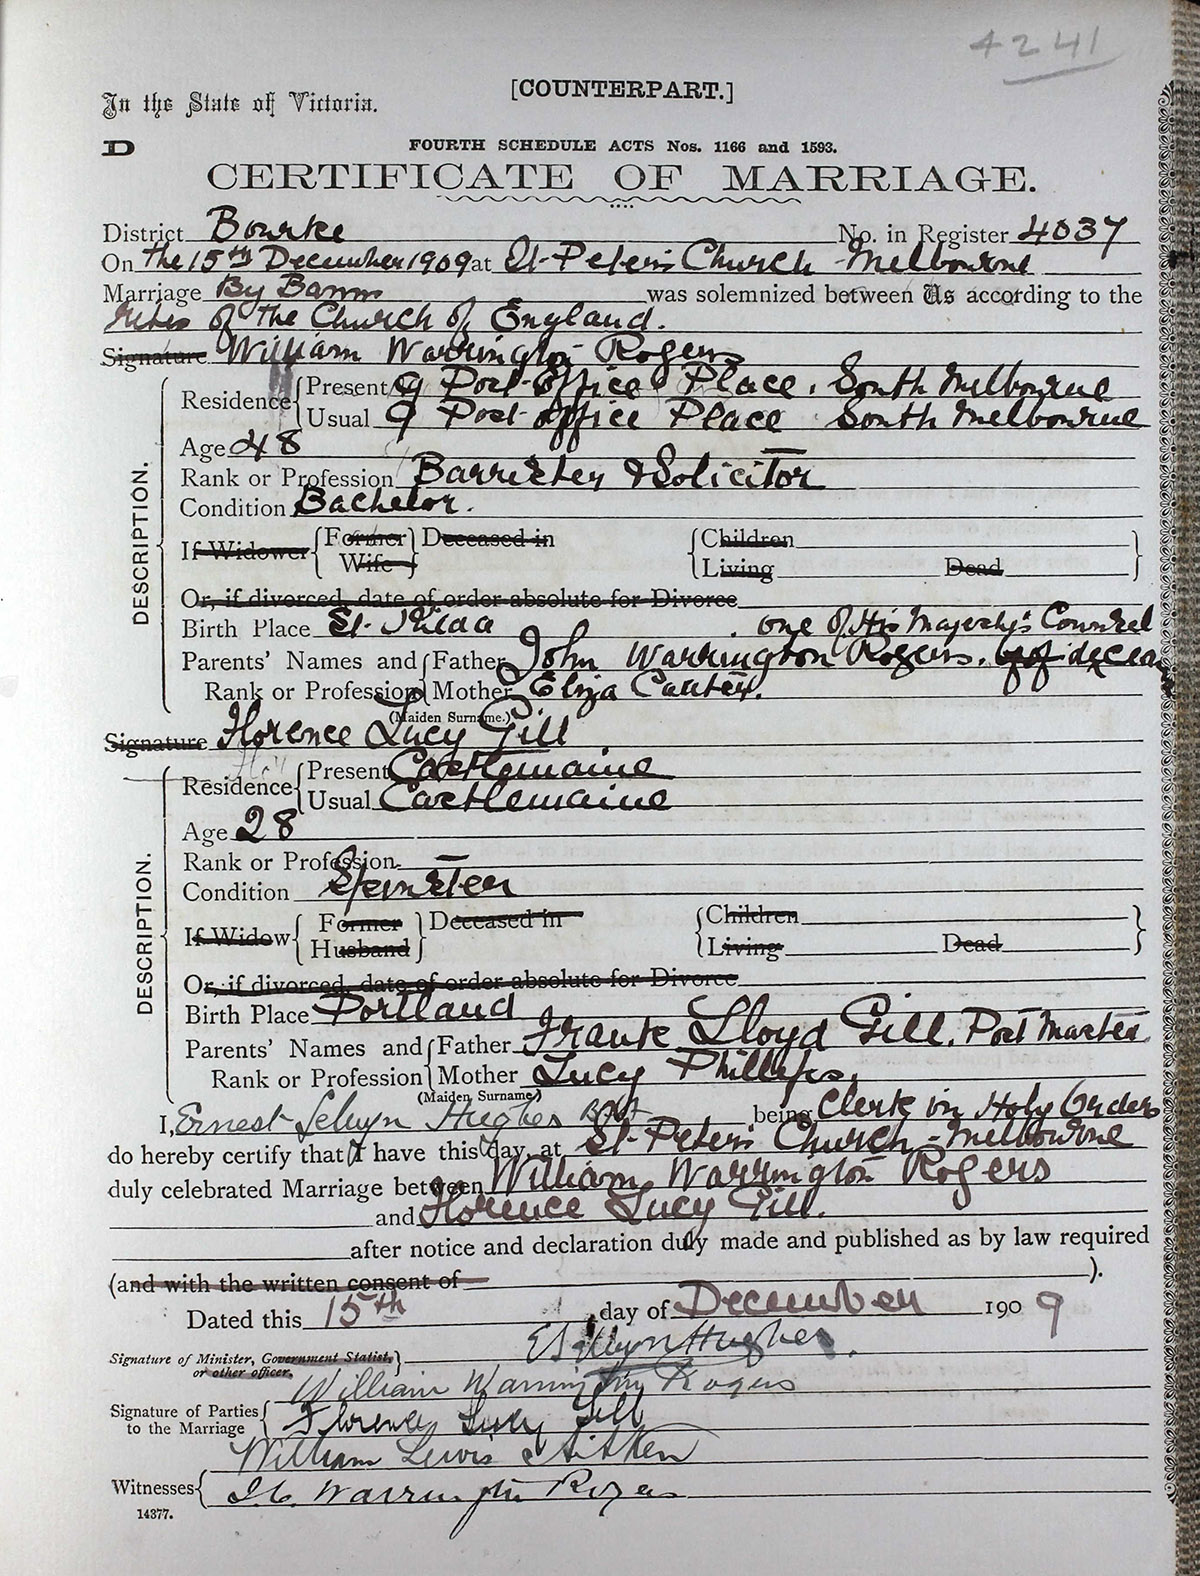 4241
[COUNTERPART.]
In the State of Victoria.
D
FOURTH SCHEDULE ACTS Nos. 1166 and 1593.
CERTIFICATE OF MARRIAGE.
District Bourke No. in Register 4037
On the 15th December 1909 at St. Peters Church - Melbourne
Marriage By Banns was solemnized between Us according to the
rites of the Church of England.
Signature William Warrington Rogers
Residence Present 9 Post-Office Place. South Melbourne
Usual 9 Post-office Place South Melbourne
Age 48
Rank or Profession Barrister & Solicitor
Condition Bachelor.
If Widower Former Wife Deceased in Children Living Dead
Or, if divorced, date of order absolute for Divorce
Birth Place St. Kilda . one of His Majesty's Counsel
Parents' Names and Father John Warrington Rogers.
Rank or Profession Mother Eliza Carter.
(Maiden Surname.)
Signature Florence Lucy Gill
Residence Present Castlemaine
Usual Castlemaine
Age 28
Rank or Profession
Condition Spinster
If Widow Former Husband Deceased in Children Living Dead
Or, if divorced, date of order absolute for Divorce
Birth Place Portland
Parents' Names and Father Frank Lloyd Gill. Post Master
Rank or Profession Mother Lucy Phillips.
(Maiden Surname)
DESCRIPTION.
DESCRIPTION.
I, Ernest Selwyn Hughes being Clerk in Holy Orders
do hereby certify that I have this day, at St. Peter's Church - Melbourne
duly celebrated Marriage between William Warrington Rogers
and Florence Lucy Gill.
after notice and declaration duly made and published as by law required
(and with the written consent of ).
Dated this 15th day of December 1909
Signature of Minister, Government Statist, or other officer, E Selwyn Hughes.
William Warrington Rogers
Signature of Parties to the Marriage Florence Lucy Gill
William Lewis Aitken
Witnesses J. C. Warrington Rogers
14377.